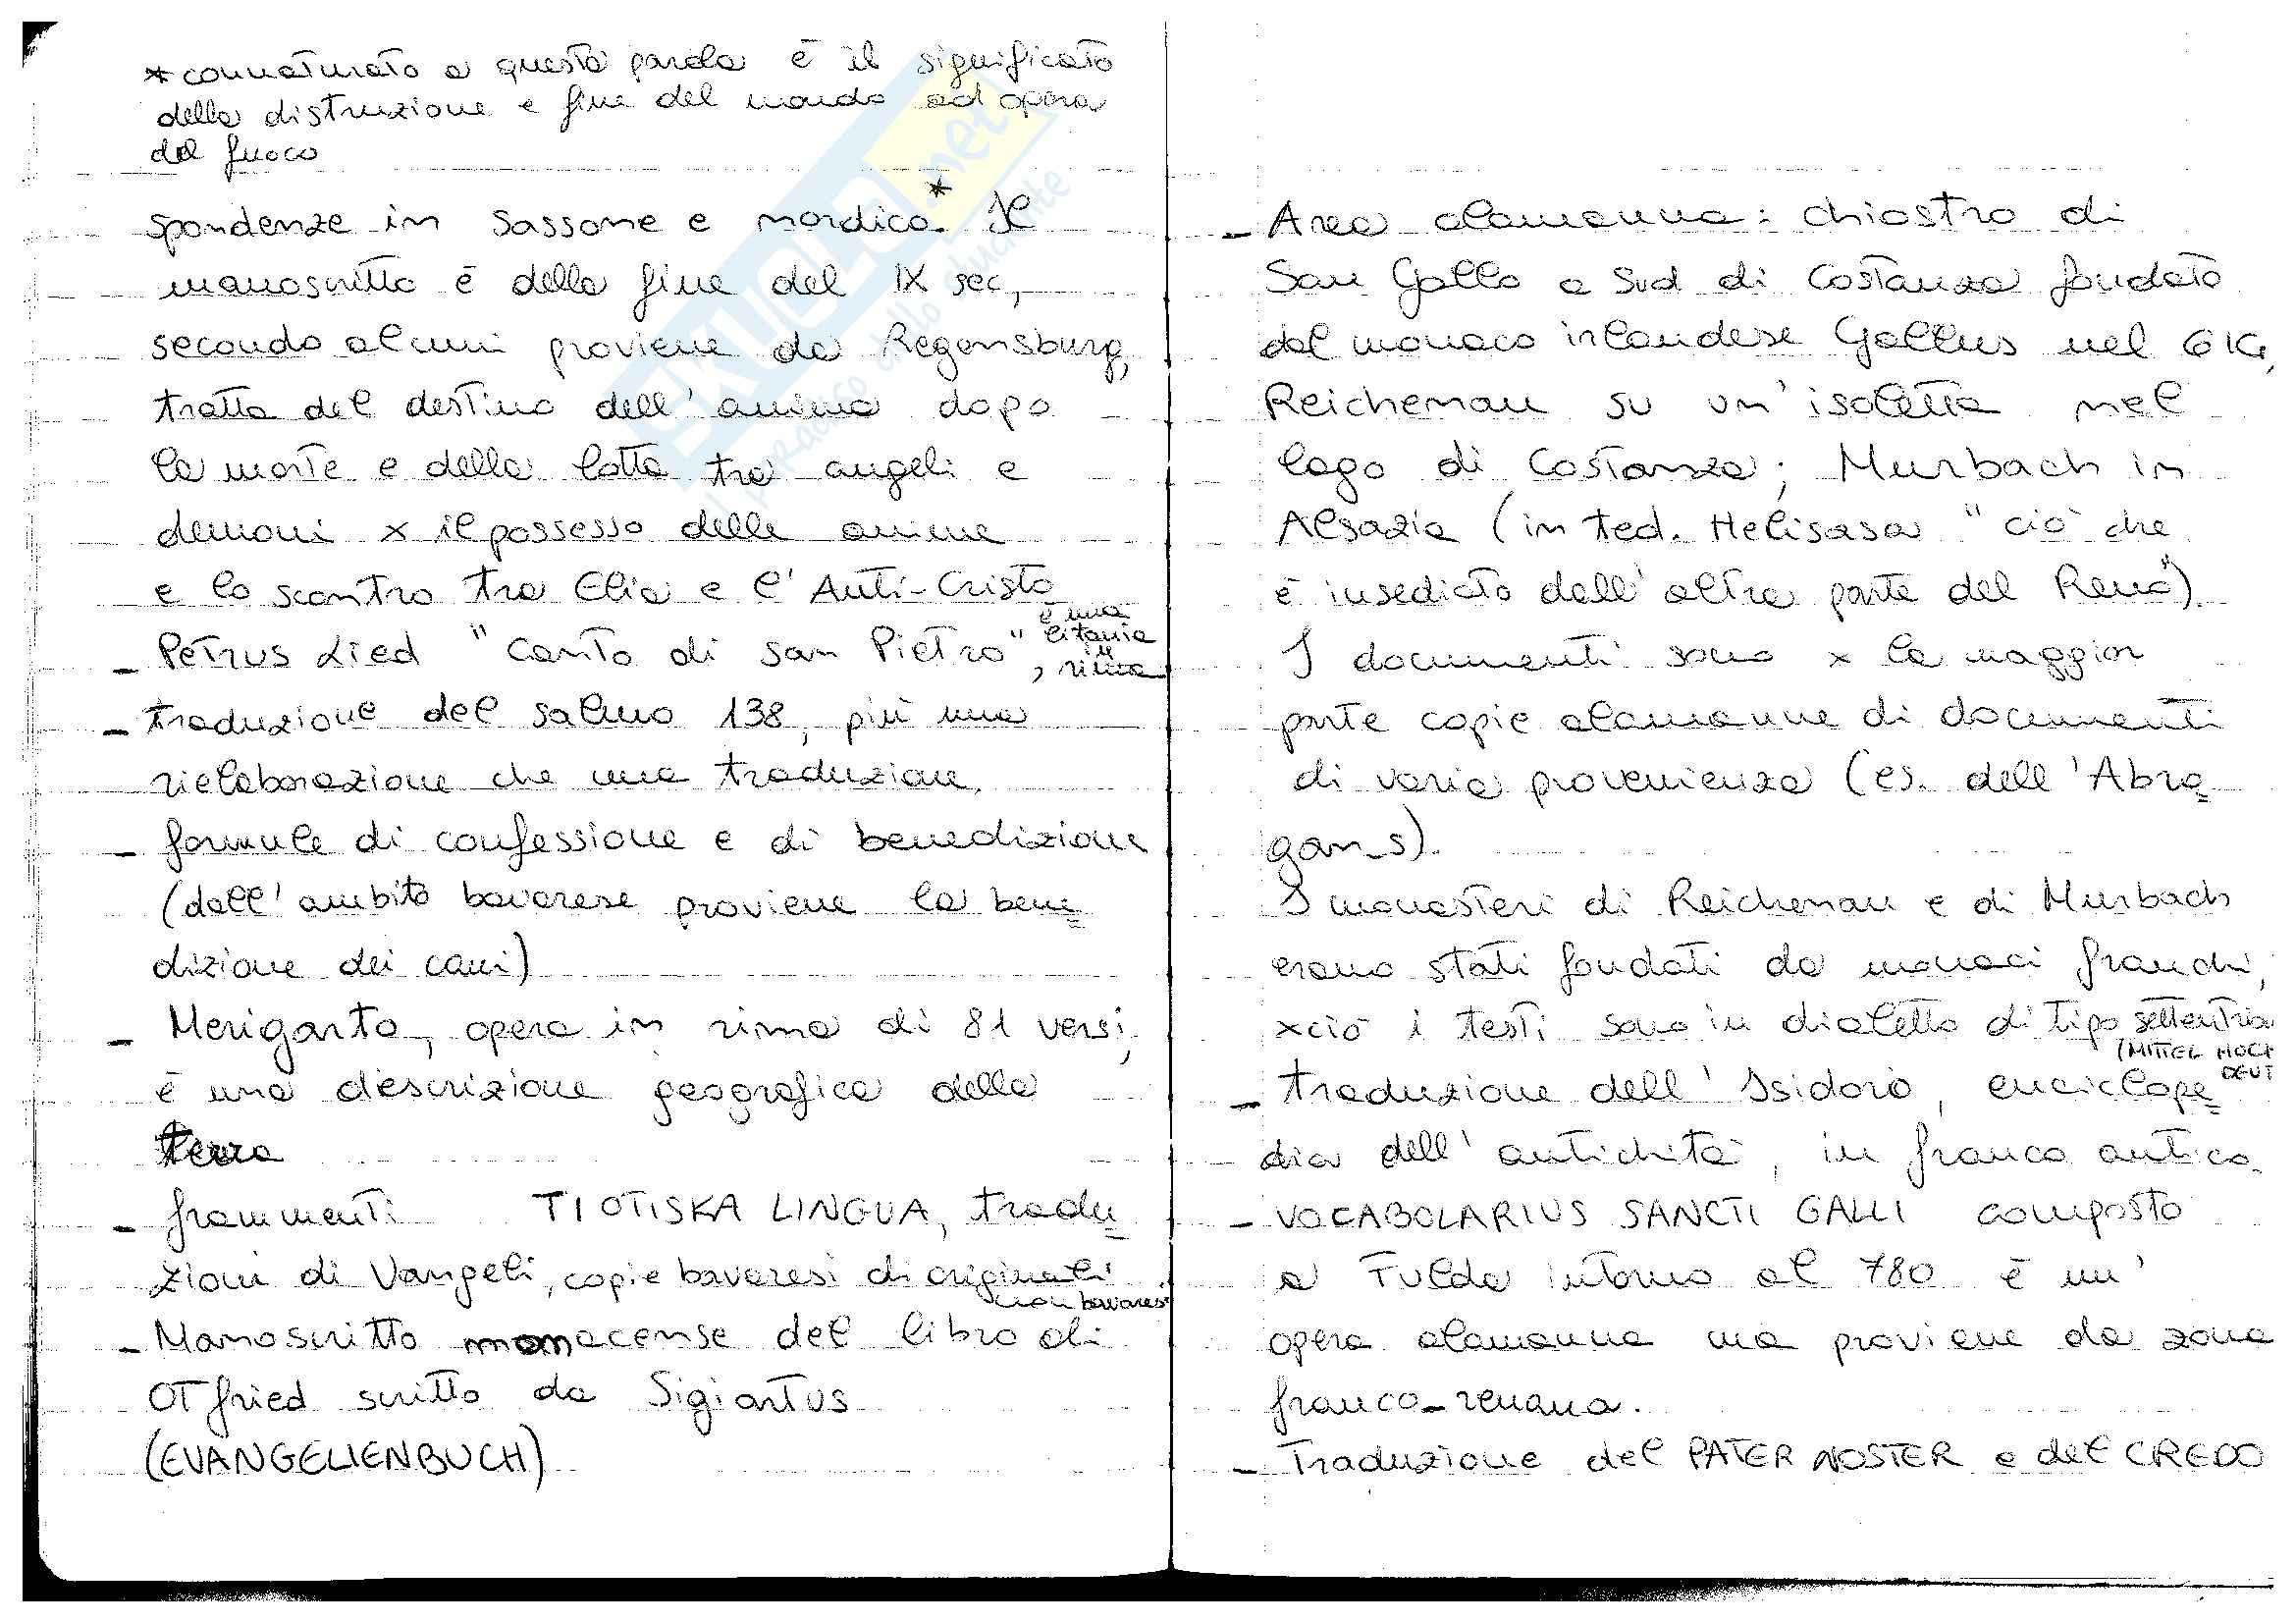 * connaturato a questa parola è il significato
della distruzione e fine del mondo ad opera
del fuoco
spondenze in sassone e nordico.* Il
manoscritto è della fine del IX sec,
secondo alcuni proviene da Regensburg,
tratta del destino dell'anima dopo
la morte e della lotta tra angeli e
demoni x il possesso delle anime
e lo scontro tra Elia e l'Anti-Cristo
- Petrus Lied "Canto di san Pietro", è una
litania
in
rima
- traduzione del salmo 138, più una
rielaborazione che una traduzione.
- formule di confessione e di benedizione
(dall'ambito bavarese proviene la bene
dizione dei cani)
- Merigarto, opera in rima di 81 versi,
è una descrizione geografica della
terra
- frammenti TIOTISKA LINGUA, tradu
zioni di Vangeli, copie bavaresi di originali
non bavaresi
- Manoscritto monacense del libro di
Otfried scritto da Sigiartus
(EVANGELIENBUCH)
- Area alamanna: chiostro di
San Gallo a Sud di Costanza fondato
dal monaco irlandese Gallus nel 614,
Reichenau su un'isoletta nel
lago di Costanza; Murbach in
Alsazia (in ted. Helisasa "ciò che
è insediato dall'altra parte del Reno").
I documenti sono x la maggior
parte copie alamanne di documenti
di varia provenienza (es. dell'Abro
gans).
I monasteri di Reichenau e di Murbach
erano stati fondati da monaci franchi,
xciò i testi sono in dialetto di tipo settentrio
(MITTEL HOCH
DEUT
- traduzione dell'Isidoro, enciclope
dia dell'antichità, in franco antico.
- VOCABOLARIUS SANCTI GALLI composto
a Fulda intorno al 780 è un'
opera alamanna ma proviene da zona
franco-renana.
- Traduzione del PATER NOSTER e del CREDO
SKUOLA.net
il paradiso dello studente